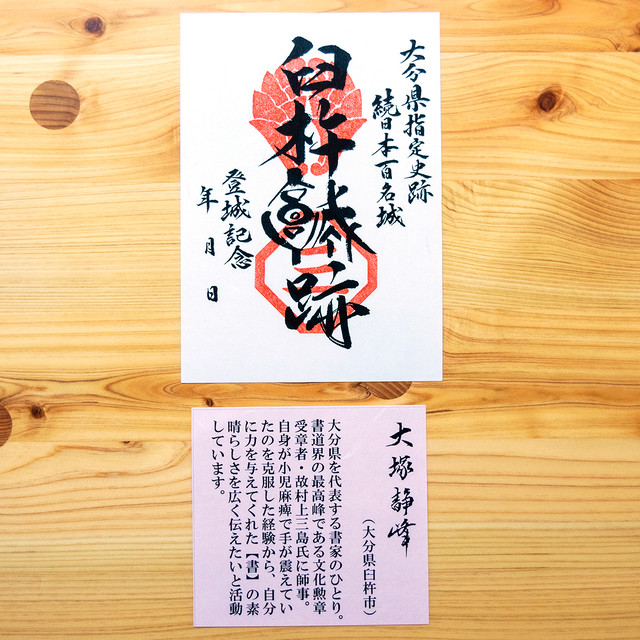 大分県指定史跡
続日本百名城
臼杵城跡
登城記念
年 月 日
大塚静峰
(大分県臼杵市)
大分県を代表する書家のひとり。
書道界の最高峰である文化勲章
受章者・故村上三島氏に師事。
自身が小児麻痺で手が震えてい
たのを克服した経験から、自分
に力を与えてくれた【書】の素
晴らしさを広く伝えたいと活動
しています。